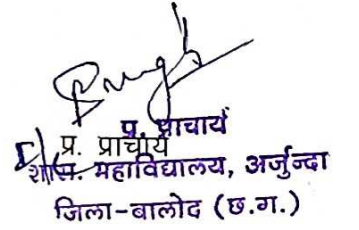 प्र. प्राचार्य
प्र. प्राचार्य
शास. महाविद्यालय, अर्जुन्दा
जिला-बालोद (छ.ग.)